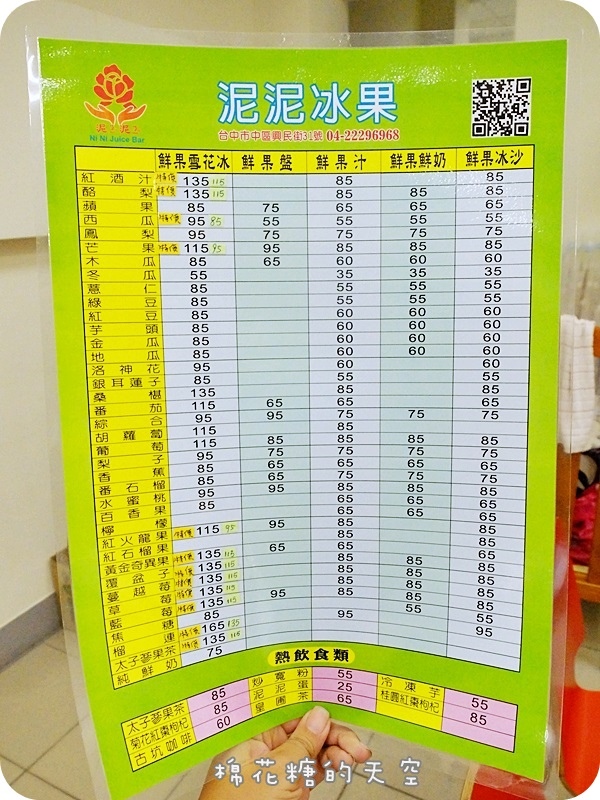 泥之泥之
Ni Ni Juice Bar
泥泥冰果
台中市中區興民街31號 04-22296968
鮮果雪花冰 鮮果盤 鮮果汁 鮮果鮮奶 鮮果冰沙
紅酒汁 特價 135 115 85 85
酪梨 特價 135 115 85 85 85
蘋果 85 75 65 65 65
西瓜 特價 95 85 55 55 55 55
鳳梨 95 75 75 75 75
芒果 特價 115 95 95 85 85 85
木瓜 85 65 60 60 60
冬瓜 55 35 35 35
薏仁 85 55 55 55
綠豆 85 55 55 55
紅豆 85 60 60 60
芋頭 85 60 60 60
金瓜 85 60 60 60
地瓜 85 60 60 60
洛神花 95 60 60
銀耳蓮子 85 55 55
桑椹 135 85 85
番茄 115 65 65 65
綜合 95 95 75 75 75
胡蘿蔔 115 85
葡萄 115 85 85 85 85
梨子 95 75 75 75 75
香蕉 85 65 65 65 65
番石榴 85 65 75 75
水蜜桃 95 95 85 85 85
百香果 85 65 65 85
檸檬 65 65
紅火龍果 特價 115 95 95 85 85
紅石榴果
黃金奇異果 特價 135 115 65
覆盆子 特價 135 115 85 85 85
蔓越莓 特價 135 115 85 85 85
草莓 特價 135 115 95 85 85 85
藍莓 特價 135 115 85 85 85
焦糖 85 55 55
榴蓮 特價 165 135 95 95
太子蔘果茶 特價 135 115
純鮮奶 75
熱飲食類
太子蔘果茶 85 炒寬粉 55 冷凍芋 55
菊花紅棗枸杞 85 泥泥蛋 25 桂圓紅棗枸杞 85
古坑咖啡 60 皇圃茶 65
棉花糖的天空